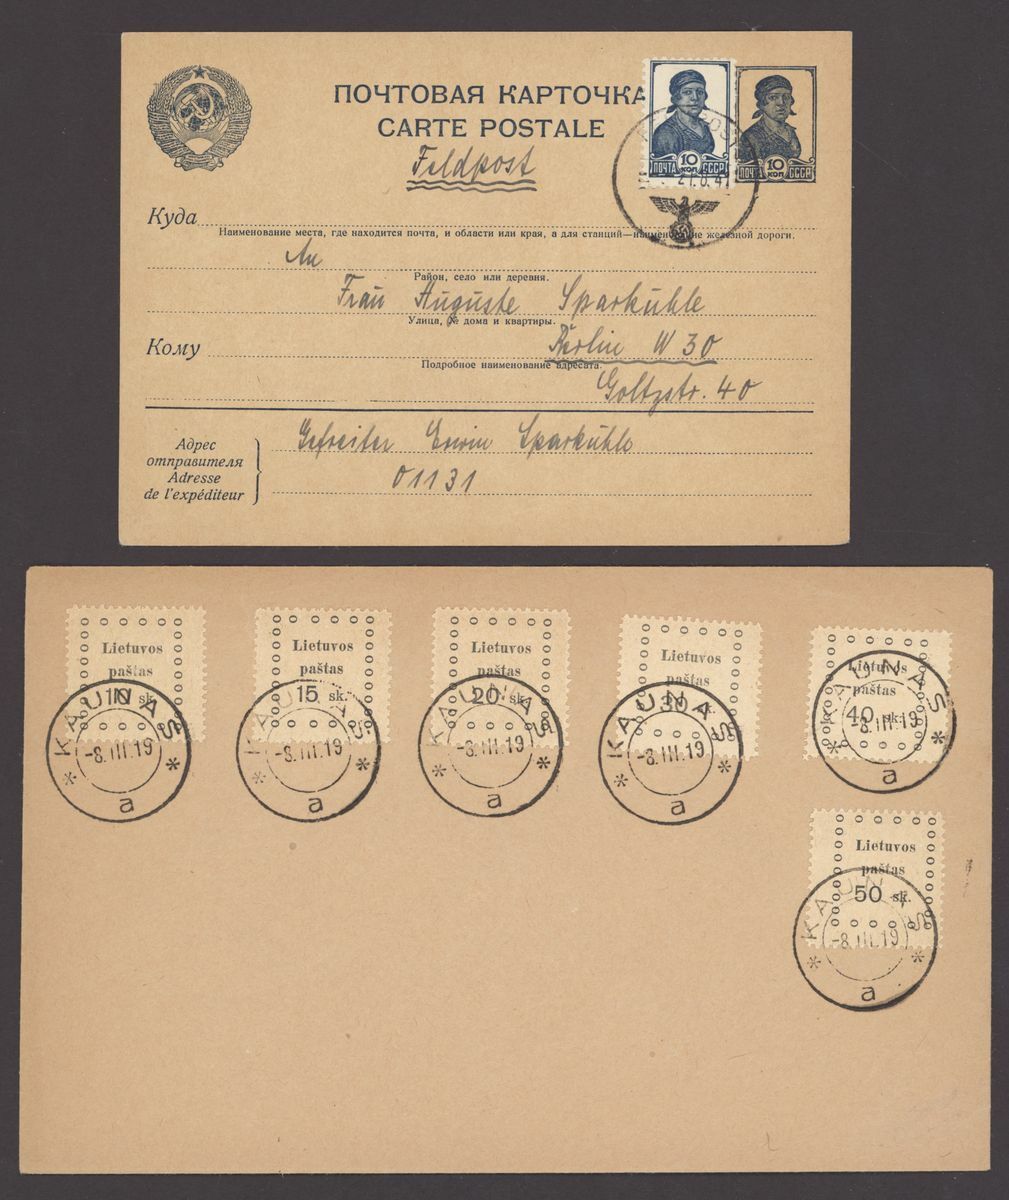 ПОЧТОВАЯ КАРТОЧКА
CARTE POSTALE
Feldpost
10 КОП
ПОЧТА СССР
10 КОП
ПОЧТА СССР
21.8.41
Куда
Наименование места, где находится почта, и области или края, а для станций—наименование железной дороги.
An
Район, село или деревня.
Frau Auguste Sparkuhle
Улица, № дома и квартиры.
Кому
Berlin W 30
Подробное наименование адресата.
Goltzstr. 40
Адрес
отправителя
Adresse
de l'expéditeur
Gefreiter Erwin Sparkuhle
01131
Lietuvos
paštas
10 sk.
KAUNAS
-8.III.19
* a *
Lietuvos
paštas
15 sk.
KAUNAS
-8.III.19
* a *
Lietuvos
paštas
20 sk.
KAUNAS
-8.III.19
* a *
Lietuvos
paštas
30 sk.
KAUNAS
-8.III.19
* a *
Lietuvos
paštas
40 sk.
KAUNAS
-8.III.19
* a *
Lietuvos
paštas
50 sk.
KAUNAS
-8.III.19
* a *